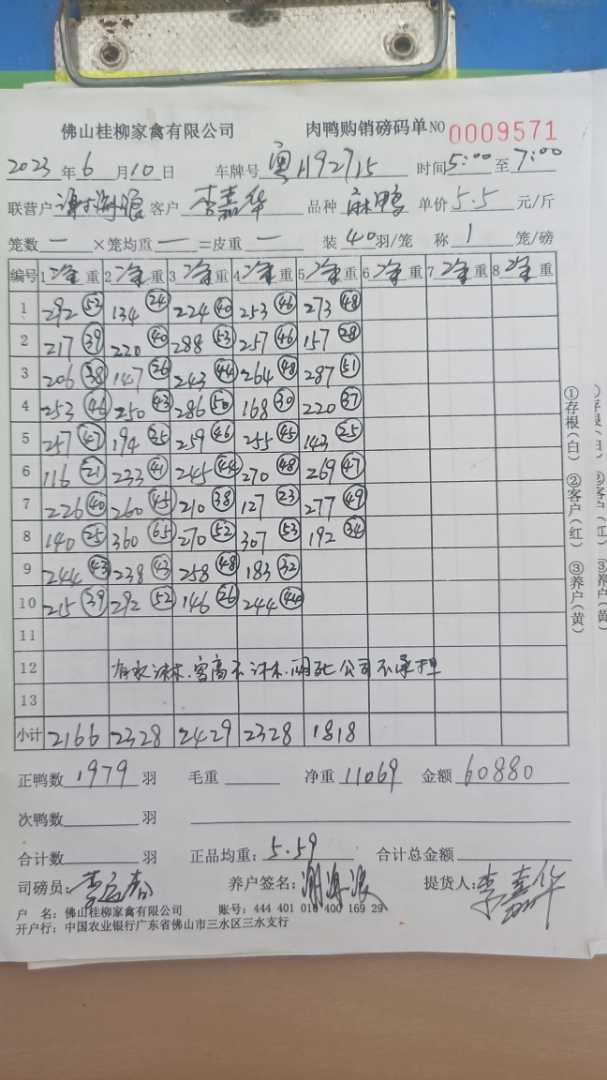 佛山桂柳家禽有限公司 肉鸭购销磅码单 NO 0009571
2023 年 6 月 10 日 车牌号 粤H92715 时间 5:00 至 7:00
联营户 谭海浪 客户 李嘉华 品种 麻鸭 单价 5.5 元/斤
笼数 一 ×笼均重 一 =皮重 一 装 40 羽/笼 称 1 笼/磅
编号 1 净重 2 净重 3 净重 4 净重 5 净重 6 净重 7 净重 8 净重
1 292 52 134 24 224 40 253 46 273 48
2 217 39 220 40 288 53 257 46 157 28
3 206 38 147 26 243 44 264 48 287 51
4 253 46 250 43 286 50 168 30 220 37
5 257 47 194 35 259 46 255 45 143 25
6 116 21 233 41 245 44 270 48 269 47
7 226 40 260 45 210 38 127 23 277 49
8 140 25 360 65 270 52 307 53 192 34
9 244 43 238 43 258 48 183 32
10 215 39 292 52 146 26 244 44
11
12 淋水. 公司不承担
13
小计 2166 2328 2429 2328 1818
正鸭数 1979 羽 毛重 净重 11069 金额 60880
次鸭数 羽
合计数 羽 正品均重: 5.59 合计总金额
司磅员: 养户签名: 谭海浪 提货人: 李嘉华
户 名: 佛山桂柳家禽有限公司 账号: 444 401 010 400 169 29
开户行: 中国农业银行广东省佛山市三水区三水支行
①存根(白) ②客户(红) ③养户(黄)